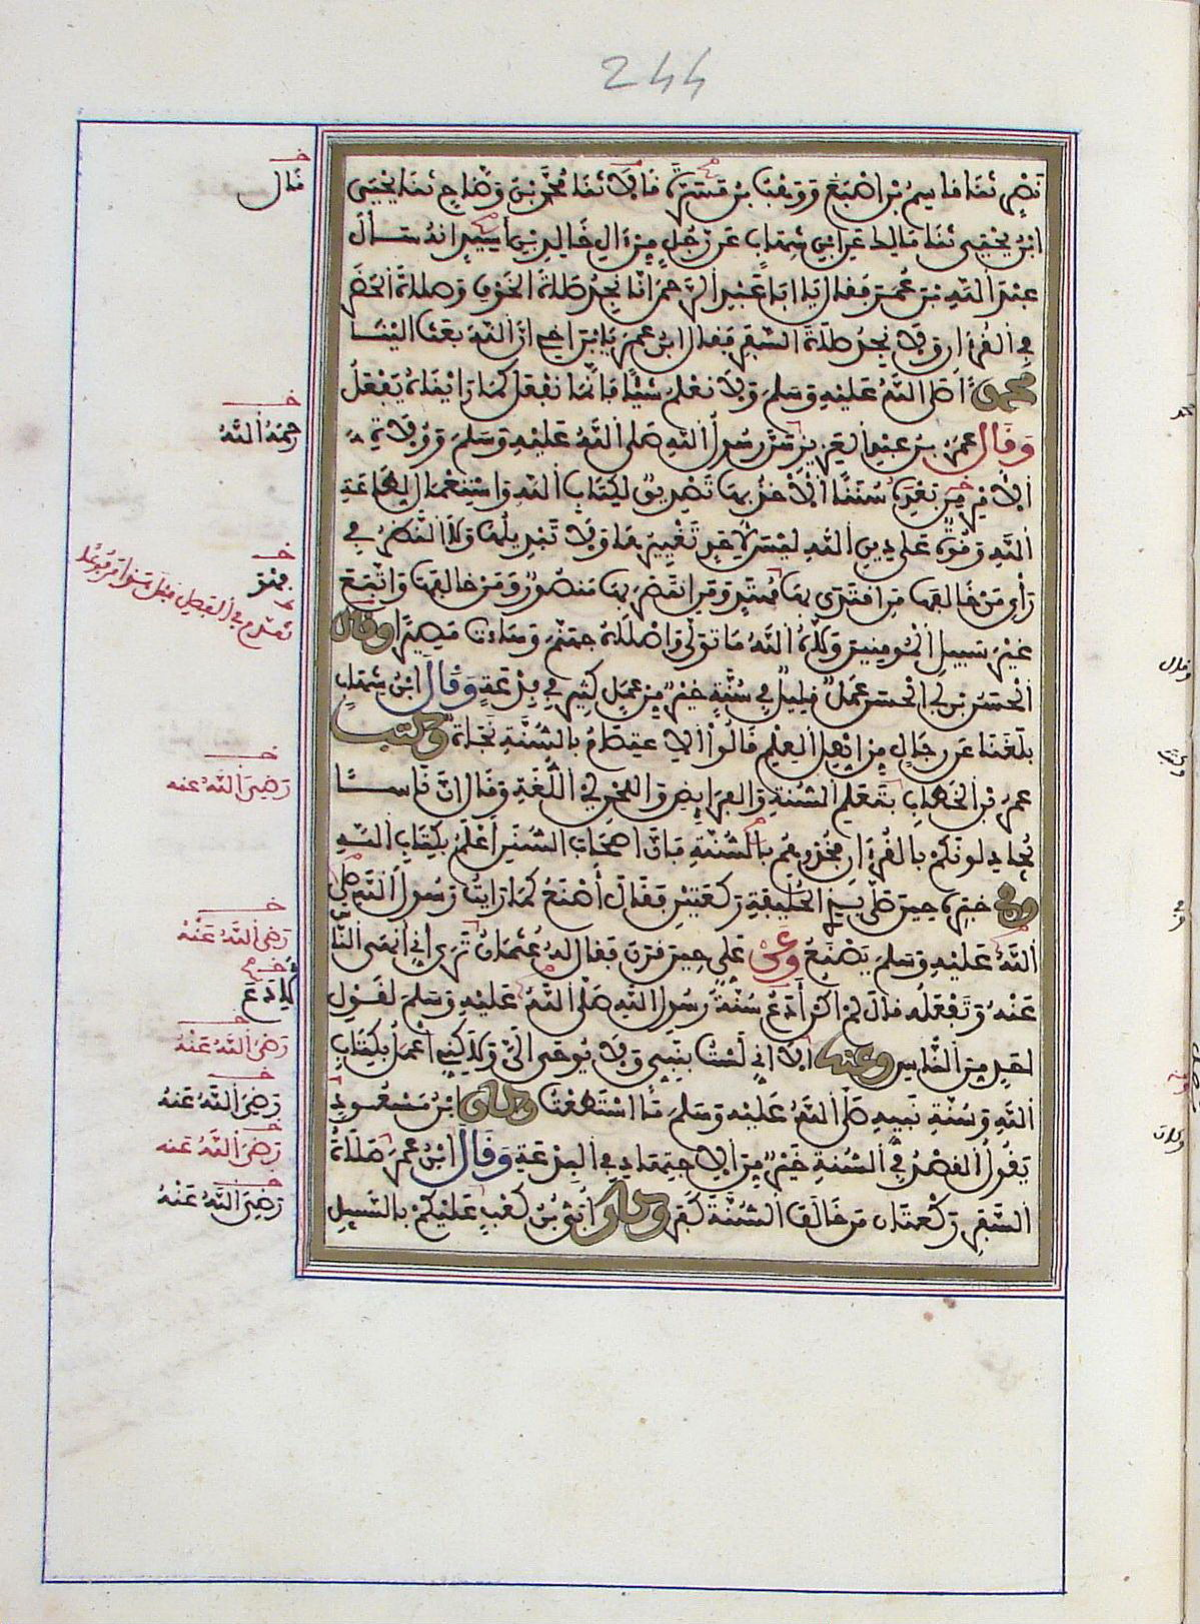 244
نصر ثنا قاسم بن اصبغ ووهب بن مسرة قالا ثنا محمد بن وضاح ثنا يحيى
ابن يحيى ثنا مالك عن ابن شهاب عن رجل من ءال خالد بن اسيد انه سأل
عبد الله بن عمر فقال يا ابا عبد الرحمن انا نجد صلاة الخوف وصلاة الحضر
في القرءان ولا نجد صلاة السفر فقال ابن عمر يابن اخي ان الله بعث الينا
محمدا صلى الله عليه وسلم ولا نعلم شيئا فانما نفعل كما رايناه يفعل
وقال عمر بن عبد العزيز سن رسول الله صلى الله عليه وسلم وولاة
الامر من بعده سننا الاخذ بها تصديق لكتاب الله واستعمال لطاعة
الله وقوة على دين الله ليس لاحد تغييرها ولا تبديلها ولا النظر في
رأي من خالفها من اقتدى بها مهتد ومن انتصر بها منصور ومن خالفها واتبع
غير سبيل المومنين ولاه الله ما تولى واصلاه جهنم وساءت مصيرا وقال
الحسن بن ابي الحسن عمل قليل في سنة خير من عمل كثير في بدعة وقال ابن شهاب
بلغنا عن رجال من اهل العلم قالوا الاعتصام بالسنة نجاة وكتب
عمر بن الخطاب بتعلم السنة والفرايض واللحن اي اللغة وقال ان ناسا
يجادلونكم بالقرءان فخذوهم بالسنن فان اصحاب السنن اعلم بكتاب الله
وفي خبره حين صلى بذي الحليفة ركعتين فقال أصنع كما رايت رسول الله صلى
الله عليه وسلم يصنع وعن علي حين قرن فقال له عثمان ترى اني انهى الناس
عنه وتفعله قال لم اكن أدع سنة رسول الله صلى الله عليه وسلم لقول
احد من الناس وعنه الا اني لست بنبي ولا يوحى الي ولاكني اعمل بكتاب
الله وسنة نبيه صلى الله عليه وسلم ما استطعت وكان ابن مسعود
يقول القصد في السنة خير من الاجتهاد في البدعة وقال ابن عمر صلاة
السفر ركعتان من خالف السنة كفر وقال ابي بن كعب عليكم بالسبيل
خ
قال
خ
رحمه الله
خ
خ
رضي الله عنه
خ
رضي الله عنه
لادع
خ
رضي الله عنه
خ
رضي الله عنه
خ
رضي الله عنه
خ
رضي الله عنه